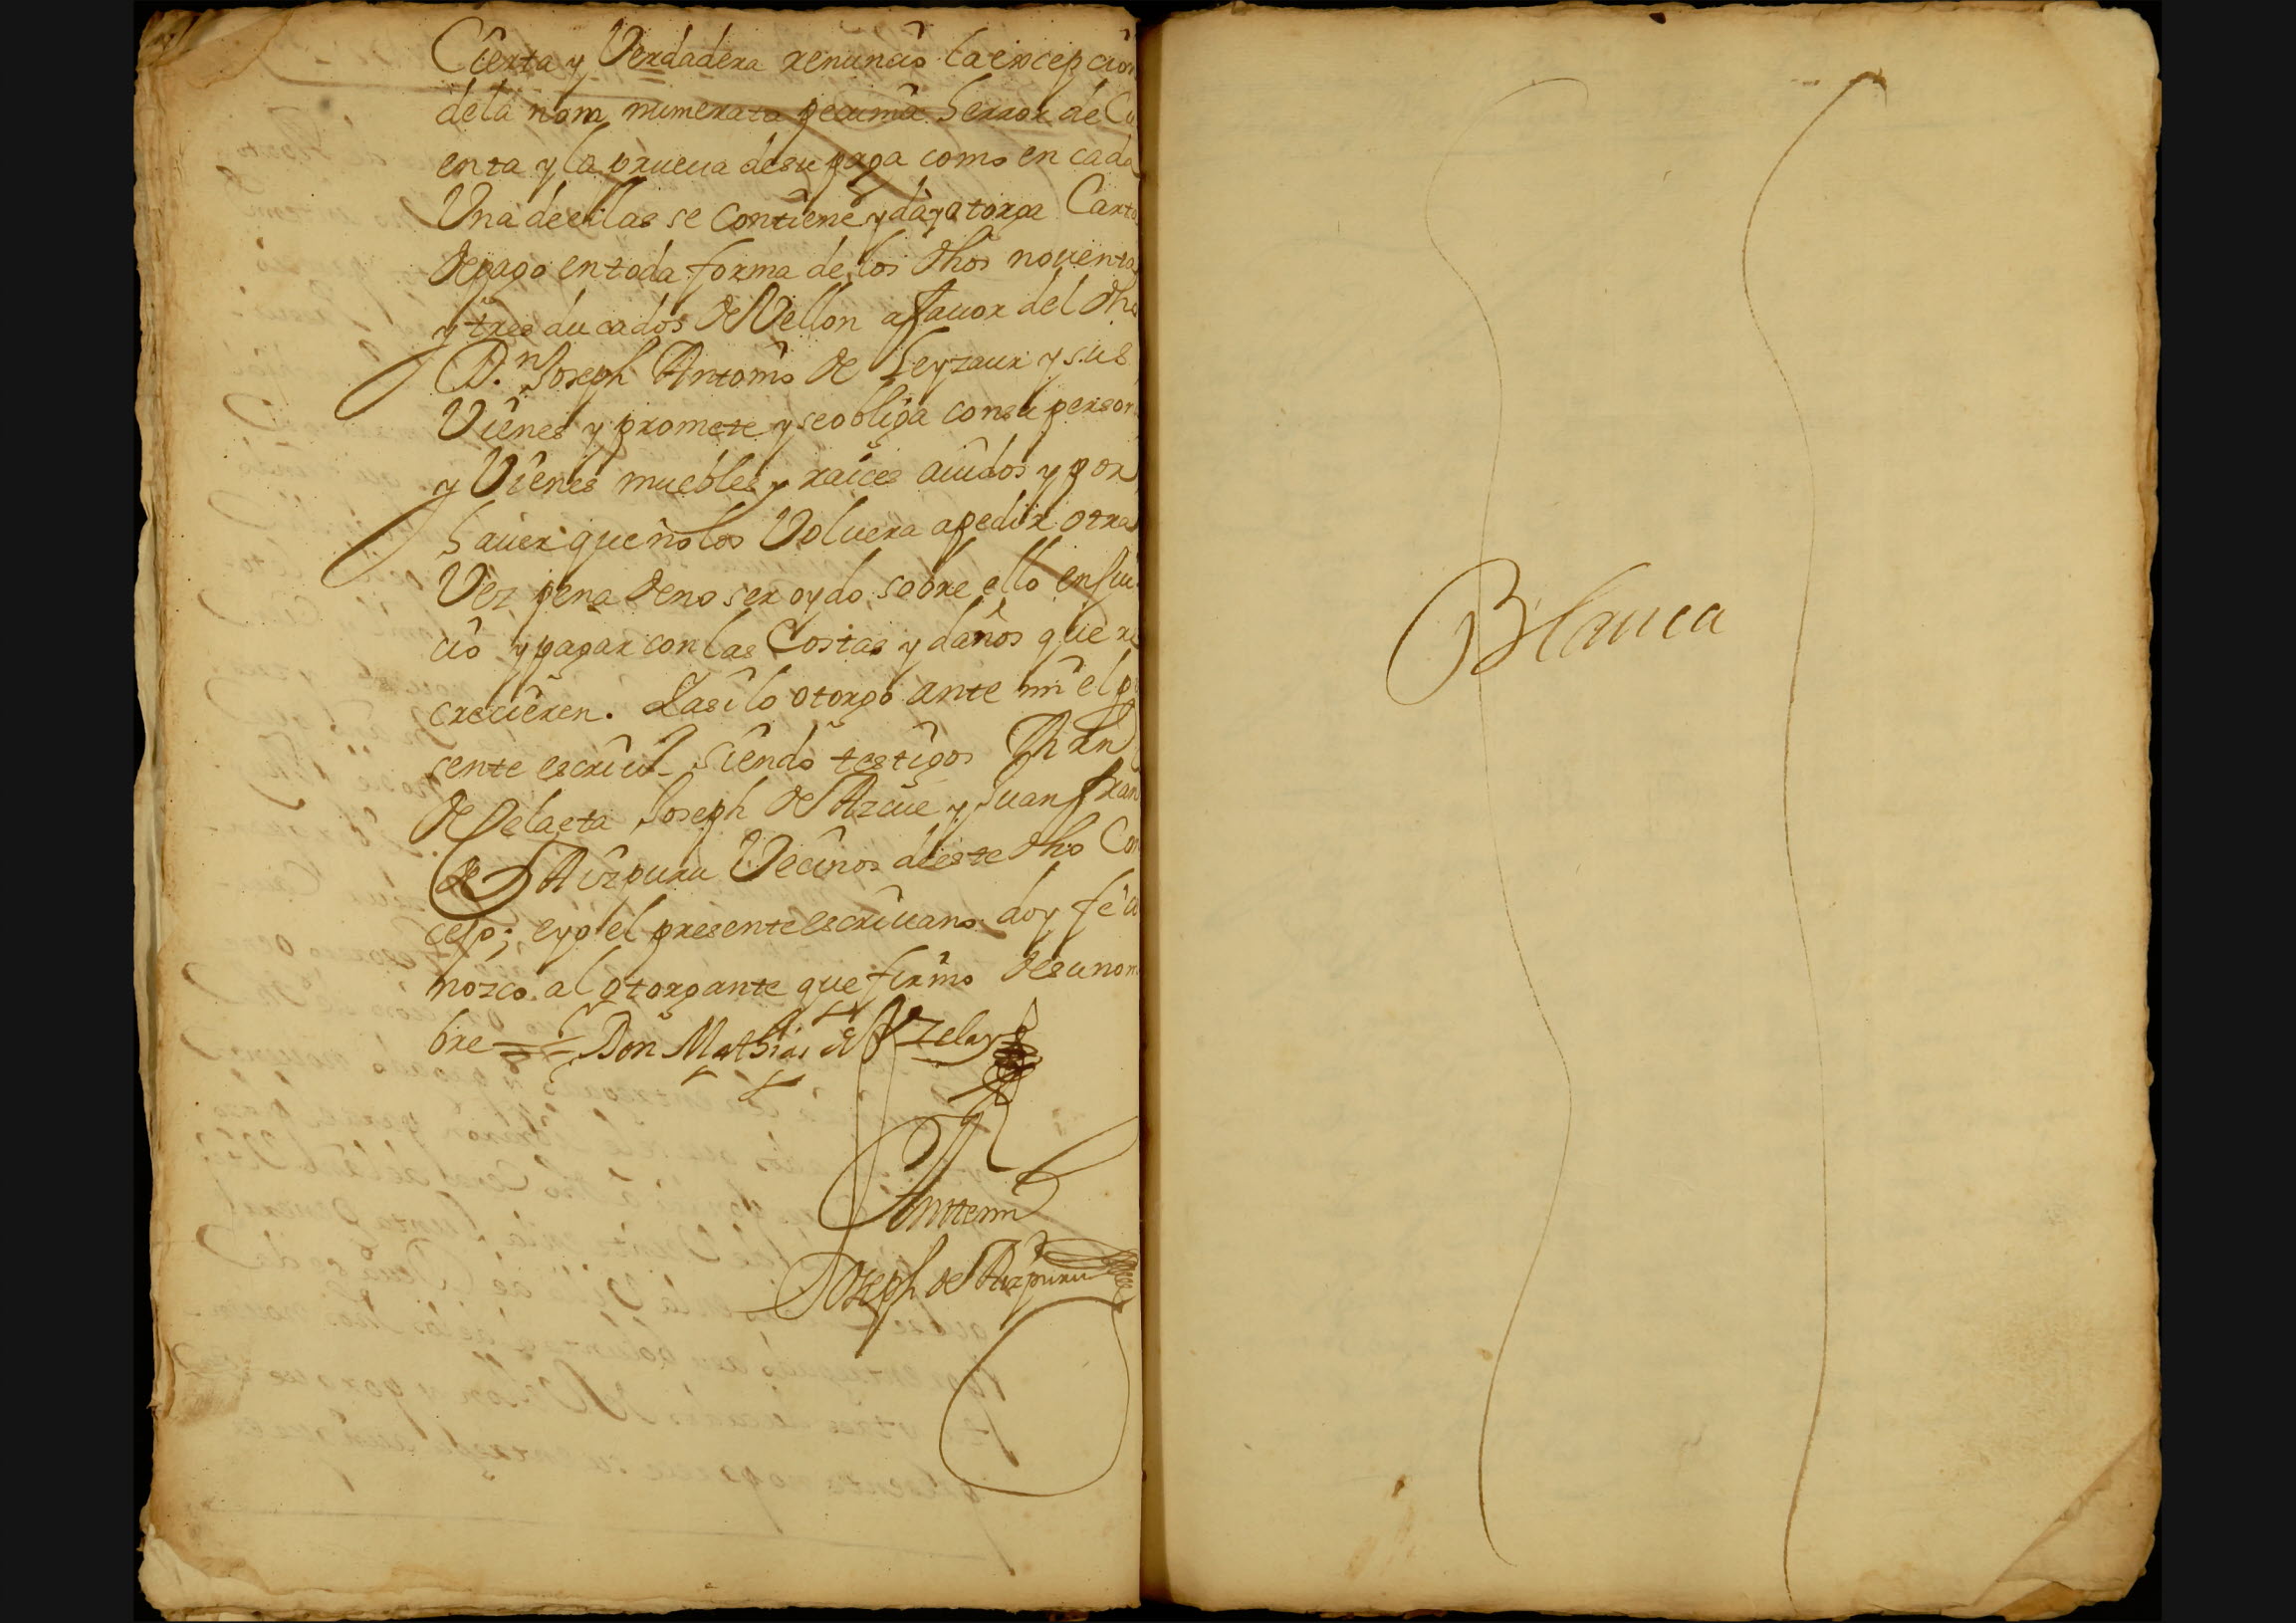 Cierta y Verdadera renuncio la excepcion
dela nom numerata pecunia herror de Cu
enta y la prueua desu paga como en cada
Una deellas se contiene y da y otorga Carta
de pago en toda forma de los dhos nouenta
y tres ducados de Vellon a fauor del dho
D.n Joseph Antonio de Leyzaur y sus
Vienes y promete y se obliga consu person
y Vienes muebles y raices auidos y por
hauer que no los Voluera a pedir otra
Vez pena de no ser oydo sobre ello en Jui
cio y pagar con las Costas y daños que re
crecieren. Y asi lo otorgo ante mi el pre
sente escriu.º siendo testigos
de Joseph de Azcue y Juan fran
de Aizpuru Vecinos de este dho Con
cejo; e yo el presente escriuano doy fe co
nozco al otorgante que firmo de su nom
bre = Don Mathias de Azelay
Antemi
Joseph de Aizpuru
Blanca